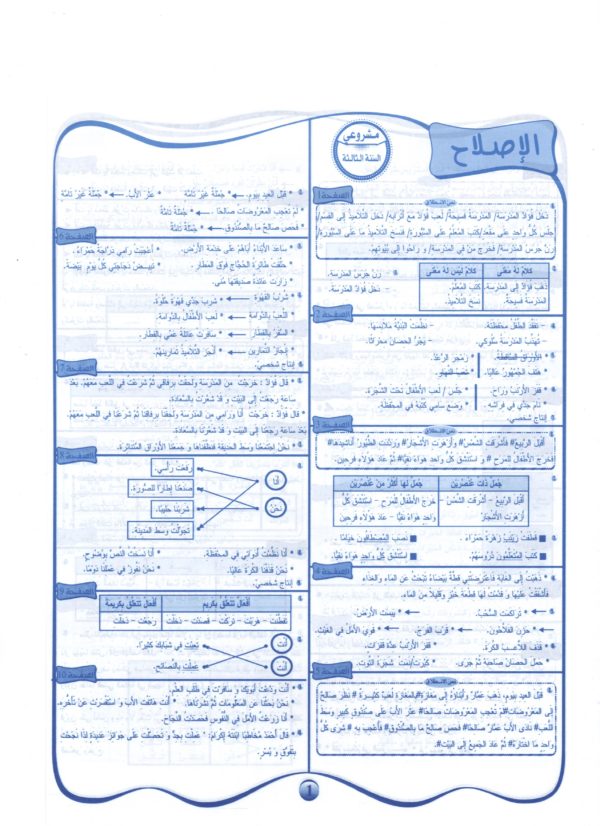 الإصلاح
مشروعي
السنة الثالثة
الصفحة 1
نص الانطلاق
دخل فؤاد المدرسة/ المدرسة فسيحة/ لعب فؤاد مع أترابه/ دخل التلاميذ إلى القسم/
جلس كل واحد على مقعد/ كتب المعلم على السبورة/ فسخ التلاميذ ما على السبورة/
رن جرس المدرسة/ فخرج من في المدرسة/ و راحوا إلى بيوتهم.
كلام له معنى
كلام ليس له معنى
ذهب فؤاد إلى المدرسة.
كتب المعلم.
المدرسة فسيحة.
نسخ التلاميذ.
- رن جرس المدرسة.
- دخل فؤاد المدرسة.
الصفحة 2
- تفقد الطفل محفظته.
- نظمت البنية ملابسها.
- تهذب المدرسة سلوكي.
- يجر الحصان محراثا.
* الأوراق المتساقطة.
* زمجر الرعد.
* هتف الجمهور عاليا.
* قفز الأرنب وراح.
* جلس / لعب الأطفال تحت الشجرة.
* نام جدي في فراشه.
* وضع سامي كتبه في المحفظة.
إنتاج شخصي.
الصفحة 3
نص الانطلاق
أقبل الربيع# فأشرقت الشمس# وأزهرت الأشجار# ورددت الطيور أناشيدها#
فخرج الأطفال للمرح # و استنشق كل واحد هواء نقيا# ثم عاد هؤلاء فرحين.
جمل ذات عنصرين
جمل لها أكثر من عنصرين
أقبل الربيع - أشرقت الشمس -
أزهرت الأشجار
خرج الأطفال للمرح - استنشق كل
واحد هواء نقيا - عاد هؤلاء فرحين
قطفت زينب زهرة حمراء.
نصب المصطافون خياما.
كتب المتعلمون دروسهم.
استنشق كل واحد هواء نقيا.
الصفحة 4
* ذهبت إلى الغابة فاعترضتني قطة بيضاء تبحث عن الماء والغذاء
فأشفقت عليها و قدمت لها قطعة خبز وقليلا من الماء.
* تراكمت السحب.
* يبست الأرض.
* حزن الفلاحون.
* قرب الفرج.
* قوي الأمل في الغيث.
* قذف اللاعب الكرة.
* قفز الأرنب عدة قفزات.
* حمل الحصان صاحبه ثم جرى.
الصفحة 5
نص الانطلاق
قبل العيد بيوم، ذهب عمار وأبناؤه إلى مغازة# بالمغازة لعب كثيرة # نظر صالح
إلى المعروضات# لم تعجب المعروضات صالحا# عثر الأب على صندوق كبير وسط
اللعب# نادى الأب عمار صالحا# فحص صالح ما بالصندوق# فأعجب به # شرى كل
واحد ما اختاره# ثم عاد الجميع إلى البيت#.
* قبل العيد بيوم. * جملة غير تامة
* عثر الأب. * جملة غير تامة
* لم تعجب المعروضات صالحا. * جملة تامة
* فحص صالح ما بالصندوق. * جملة تامة
الصفحة 6
* ساعد الأبناء أباهم على خدمة الأرض.
* أعجبت رامي دراجة حمراء.
* حلقت طائرة الحجاج فوق المطار.
* تبيض دجاجتي كل يوم بيضة.
* زارت عائدة صديقتها منى.
* شرب القهوة
* شرب جدي قهوة حلوة.
* اللعب بالدوامة
* لعب الأطفال بالدوامة.
* السفر بالقطار
* سافرت عائلة عمي بالقطار.
* إنجاز التمارين
* أنجز التلاميذ تمارينهم.
* إنتاج شخصي.
الصفحة 7
* قال فؤاد : خرجت من المدرسة ولحقت برفاقي ثم شرعت في اللعب معهم. بعد
ساعة رجعت إلى البيت و قد شعرت بالسعادة.
* قال فؤاد : خرجت أنا ورامي من المدرسة ولحقنا برفاقنا ثم شرعنا في اللعب معهم.
بعد ساعة رجعنا إلى البيت و قد شعرنا بالسعادة.
* نحن اجتمعنا وسط الحديقة فنظفناها و جمعنا الأوراق المتناثرة.
الصفحة 8
أنا
نحن
رفعت رأسي.
صنعنا إطارا للصورة.
شربنا حليبا.
تجولت وسط المدينة.
* أنا نظمت أدواتي في المحفظة.
* أنا نسخت النص بوضوح.
* نحن قذفنا الكرة عاليا.
* نحن نفوز في عملنا دوما.
إنتاج شخصي.
الصفحة 9
أفعال تتعلق بكريم
أفعال تتعلق بكريمة
تفطنت - هربت - تركت - قصدت - دخلت
رجعت - دخلت
أنت
أنت
تعبت في شبابك كثيرا.
عملت بالنصائح.
الصفحة 10
* أنت ودعت أبويك و سافرت في طلب العلم.
* نحن بحثنا عن المعلومات ثم نشرناها.
* أنت هاتفت الأب و استفسرت عن تأخره.
* أنا زرعت الأمل في النفوس فحصدت النجاح.
* قال أحمد مخاطبا ابنته إكرام: عملت بجد و تحصلت على جوائز عديدة لذا نجحت
بتفوق و يسر.
1